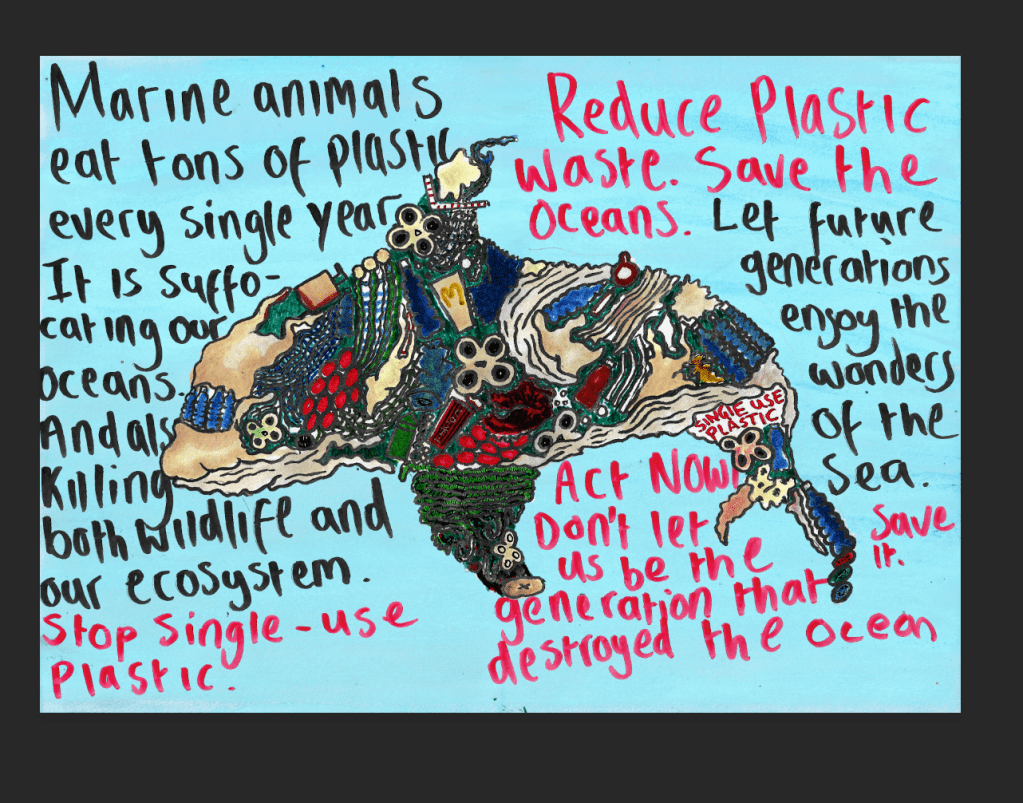 Marine animals
eat tons of plastic
every single year
It is suffo-
cating our
oceans.
And als
Killing
both wildlife and
our ecosystem.
Stop single-use
Plastic.
Reduce Plastic
waste. Save the
oceans. Let future
generations
enjoy the
wonders
of the
Sea.
Save
it.
SINGLE USE
PLASTIC
Act Now!
Don't let
us be the
generation that
destroyed the ocean